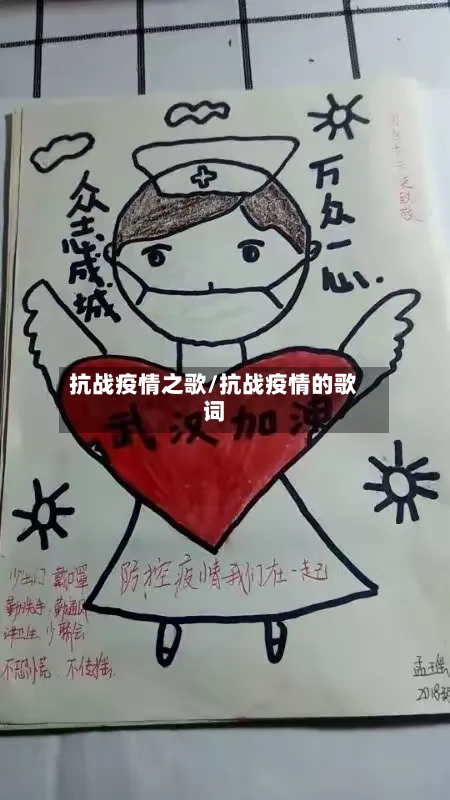 众志成城
万众一心.
抗战疫情之歌/抗战疫情的歌
词
武汉加油
防控疫情我们在一起
少出门 戴口罩
勤洗手.勤通风
讲卫生.少聚会
不恐慌.不传谣.